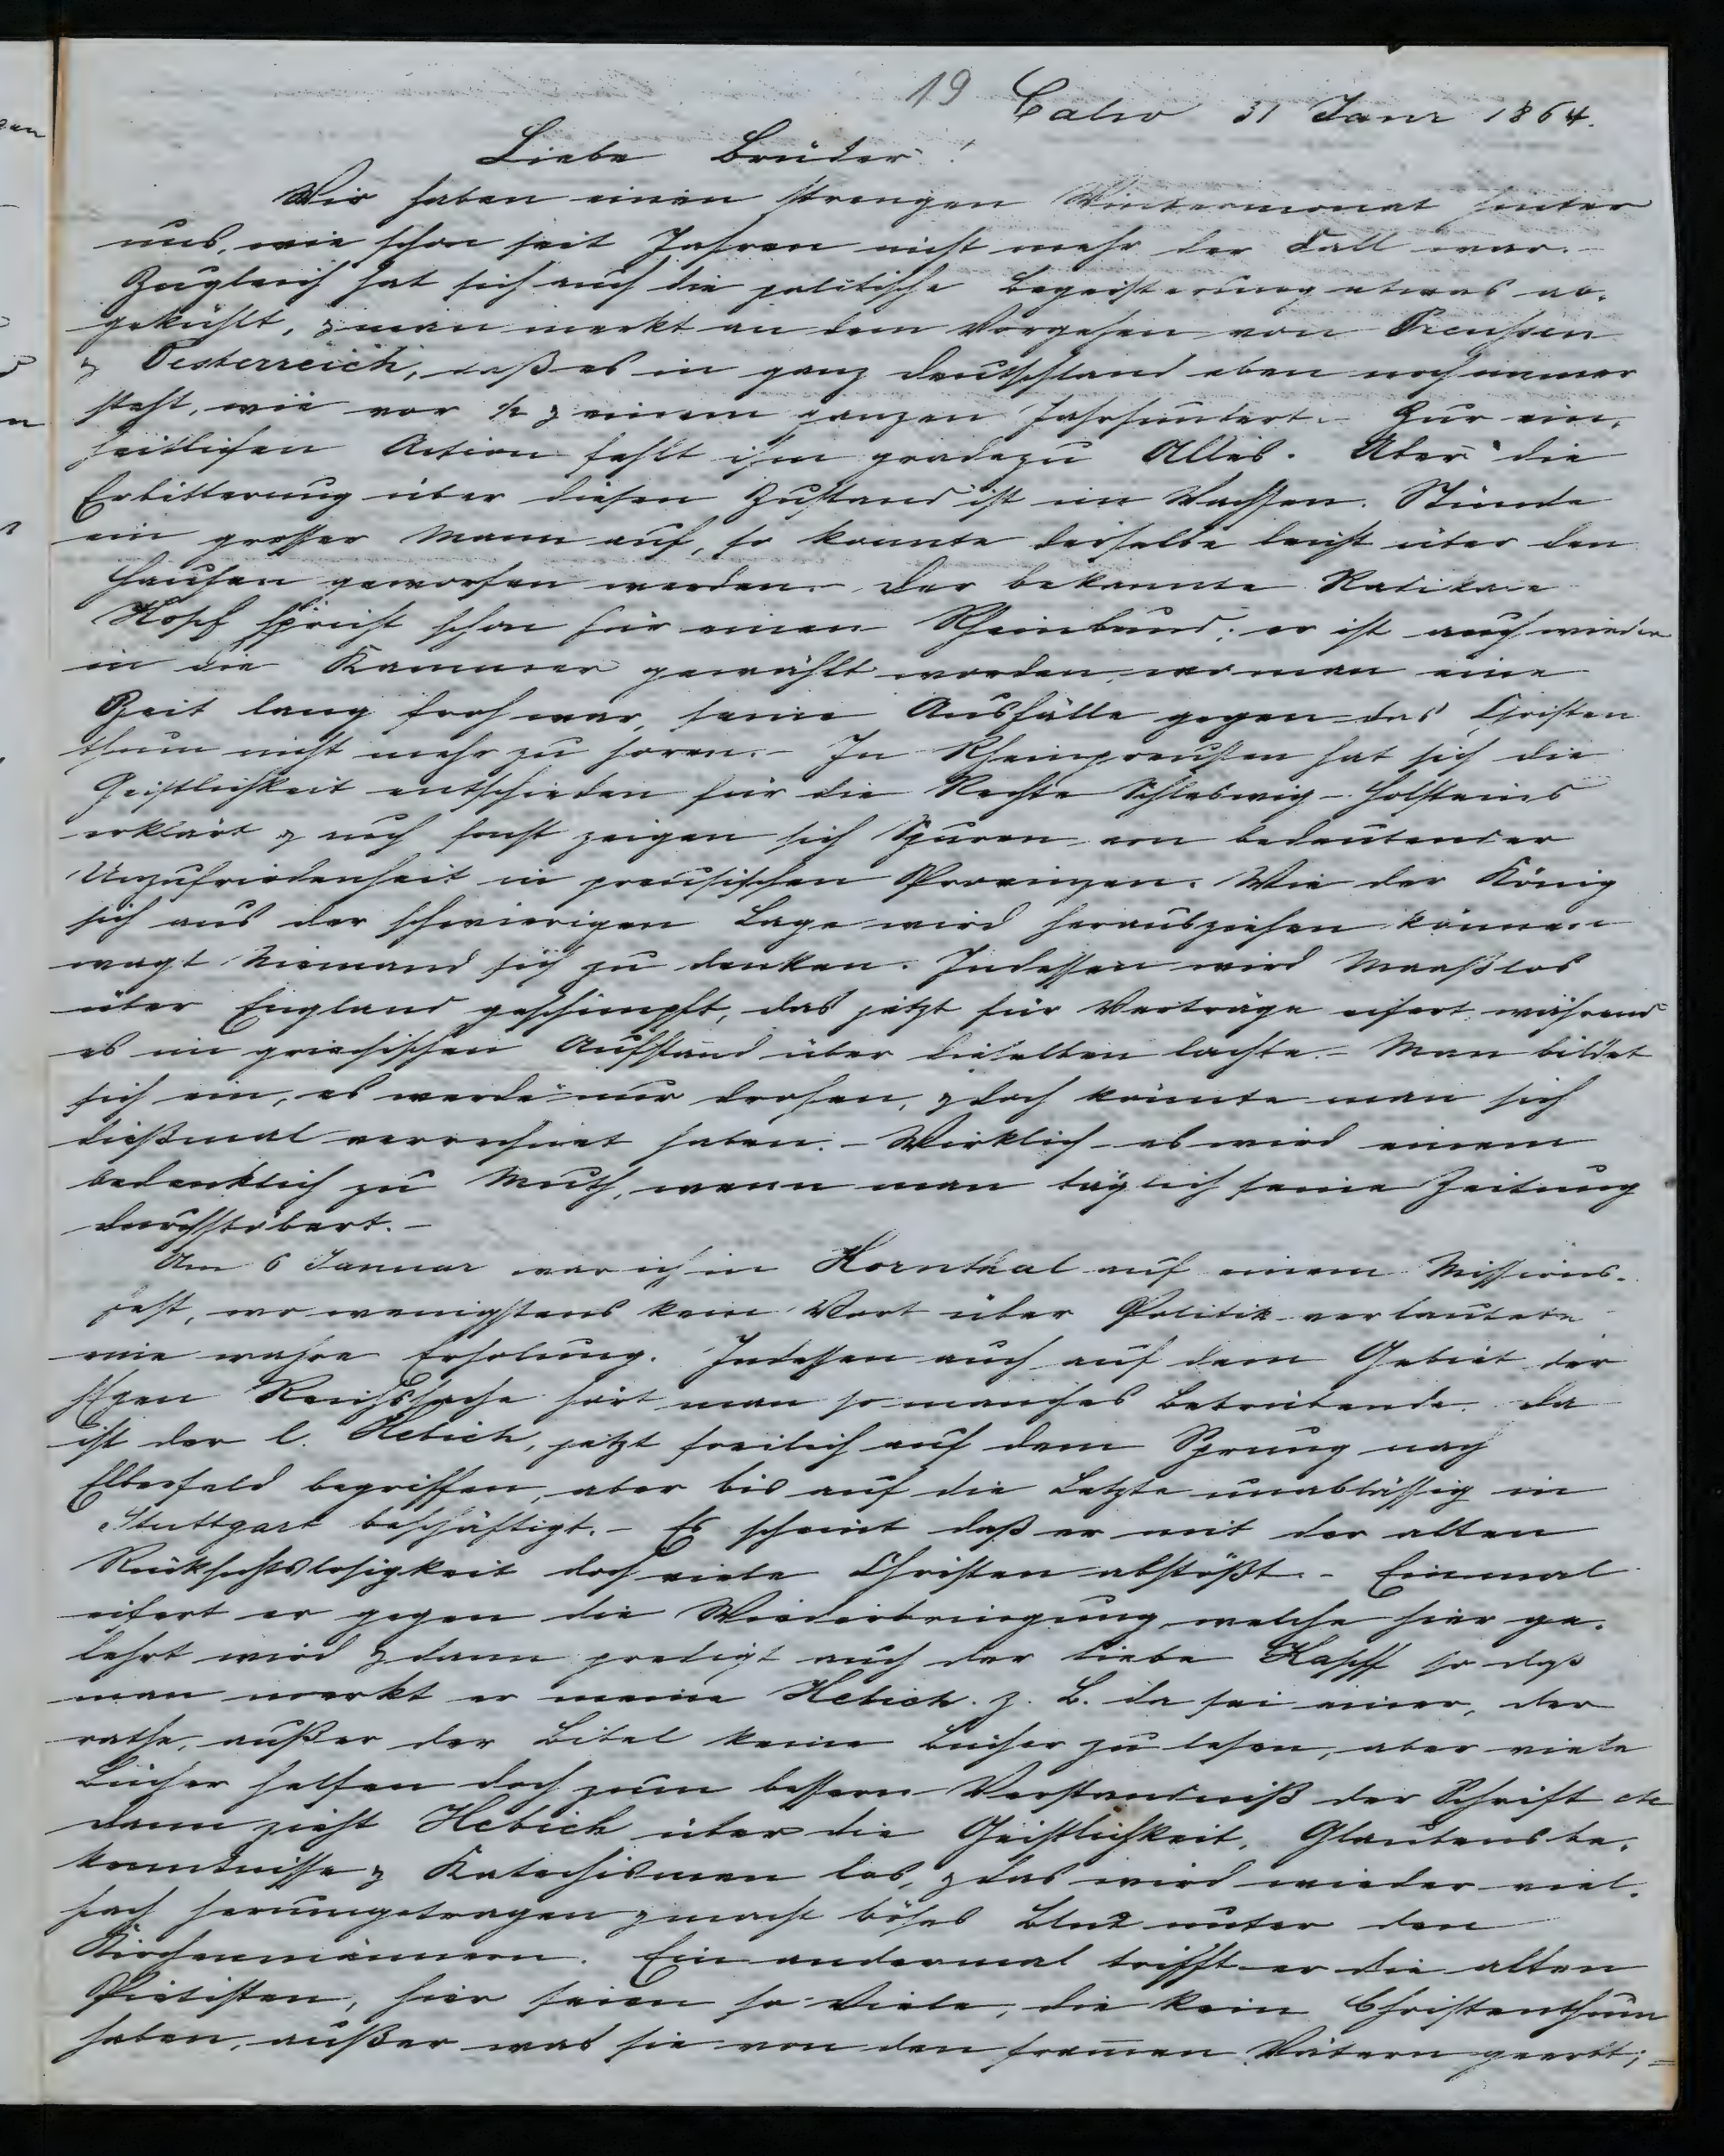 19 Calw 31 Janr 1864.
Liebe Brüder!
Wir haben einen strengen Wintermonat hinter
uns, wie schon seit Jahren nicht mehr der Fall war. -
Zugleich hat sich auch die politische Begeisterung etwas ab-
gekühlt, & man merkt an dem Vorgehen von Preussen
& Oesterreich, daß es in ganz Deutschland eben noch immer
steht, wie vor ½ & einem ganzen Jahrhundert. Zur ein-
heitlichen Action fehlt ihm gradezu Alles. Aber die
Erbitterung über diesen Zustand ist im Wachsen. Stünde
ein grosser Mann auf, so konnte derselbe leicht über den
Haufen geworfen werden. - Der bekannte Radikale
Hopf spricht schon für einen Rheinbund; er ist auch wieder
in die Kammer gewählt worden, wo man eine
Zeit lang froh war, seine Ausfälle gegen das Christen
thum nicht mehr zu hören. - In Rheinpreußen hat sich die
Geistlichkeit entschieden für die Rechte Schleswig-Holsteins
erklärt & auch sonst zeigen sich Spuren von bedeutender
Unzufriedenheit in preusischen Provinzen. Wie der König
sich aus der schwierigen Lage wird herausziehen können
wagt Niemand sich zu denken. Indessen wird Maaßlos
über England geschimpft, das jetzt für Verträge eifert während
es im griechischen Aufstand über dieselben lachte. - Man bildet
sich ein, es werde nur drohen, & doch könnte man sich
dießmal verrechnet haben. - Wirklich es wird einem
bedenklich zu Muth, wenn man täglich seine Zeitung
durchstöbert. -
Am 6 Januar war ich in Kornthal auf einem Missions-
fest, wo wenigstens kein Wort über Politik verlautete
eine wahre Erholung. Indessen auch auf dem Gebiet der
hlgen Reichssache hört man so manches Betrübende. Da
ist der l. Hebich, jetzt freilich auf dem Sprung nach
Elberfeld begriffen, aber bis auf die Letzte unablässig in
Stuttgart beschäftigt. - Es scheint daß er mit der alten
Rücksichtslosigkeit doch viele Christen abstößt. - Einmal
eifert er gegen die Wiederbringung welche hier ge-
lehrt wird & dann predigt auch der liebe Kapff so daß
man merkt er meine Hebich. z. B. da sei einer, der
rathe, außer der Bibel keine Bücher zu lesen, aber viele
Bücher helfen doch zum bessern Verständniß der Schrift etc
dann zieht Hebich über die Geistlichkeit, Glaubensbe-
kenntnisse & Katechismen los, & das wird wieder viel-
fach herumgetragen & macht böses Blut unter den
Kirchenmännern. Ein andermal trifft er die alten
Pietisten, hier seien so Viele, die kein Christenthum
haben, außer was sie von den fromen Vätern geerbt; =